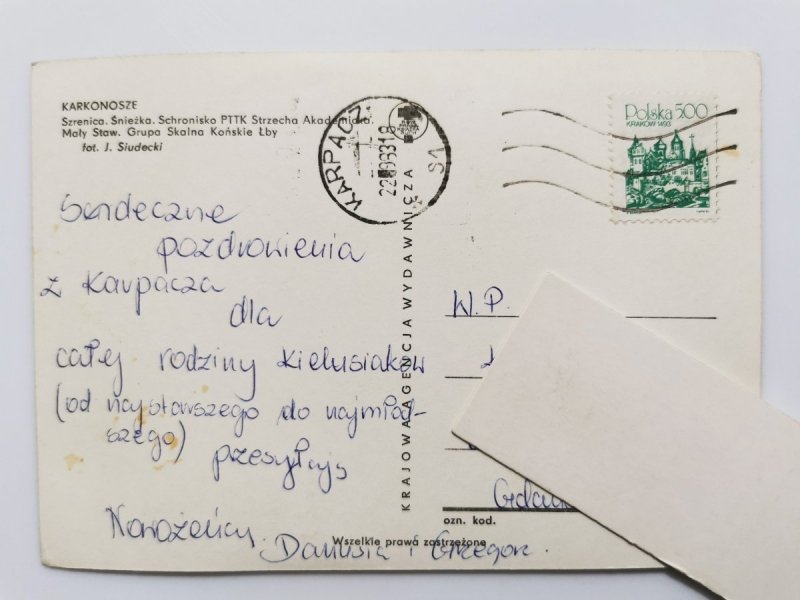 KARKONOSZE
Szrenica. Śnieżka. Schronisko PTTK Strzecha Akademicka.
Mały Staw. Grupa Skalna Końskie Łby
fot. J. Siudecki
KARPACZ
S1
Polska 5.00
KRAKÓW 1493
Serdeczne
pozdrowienia
z Karpacza
dla
całej rodziny Kielusiaków
(od najstarszego do najmłod-
szego)
przesyłają
Nowożeńcy
Danusia i Grzegorz.
KRAJOWA AGENCJA WYDAWNICZA
W.P.
ozn. kod.
Wszelkie prawa zastrzeżone